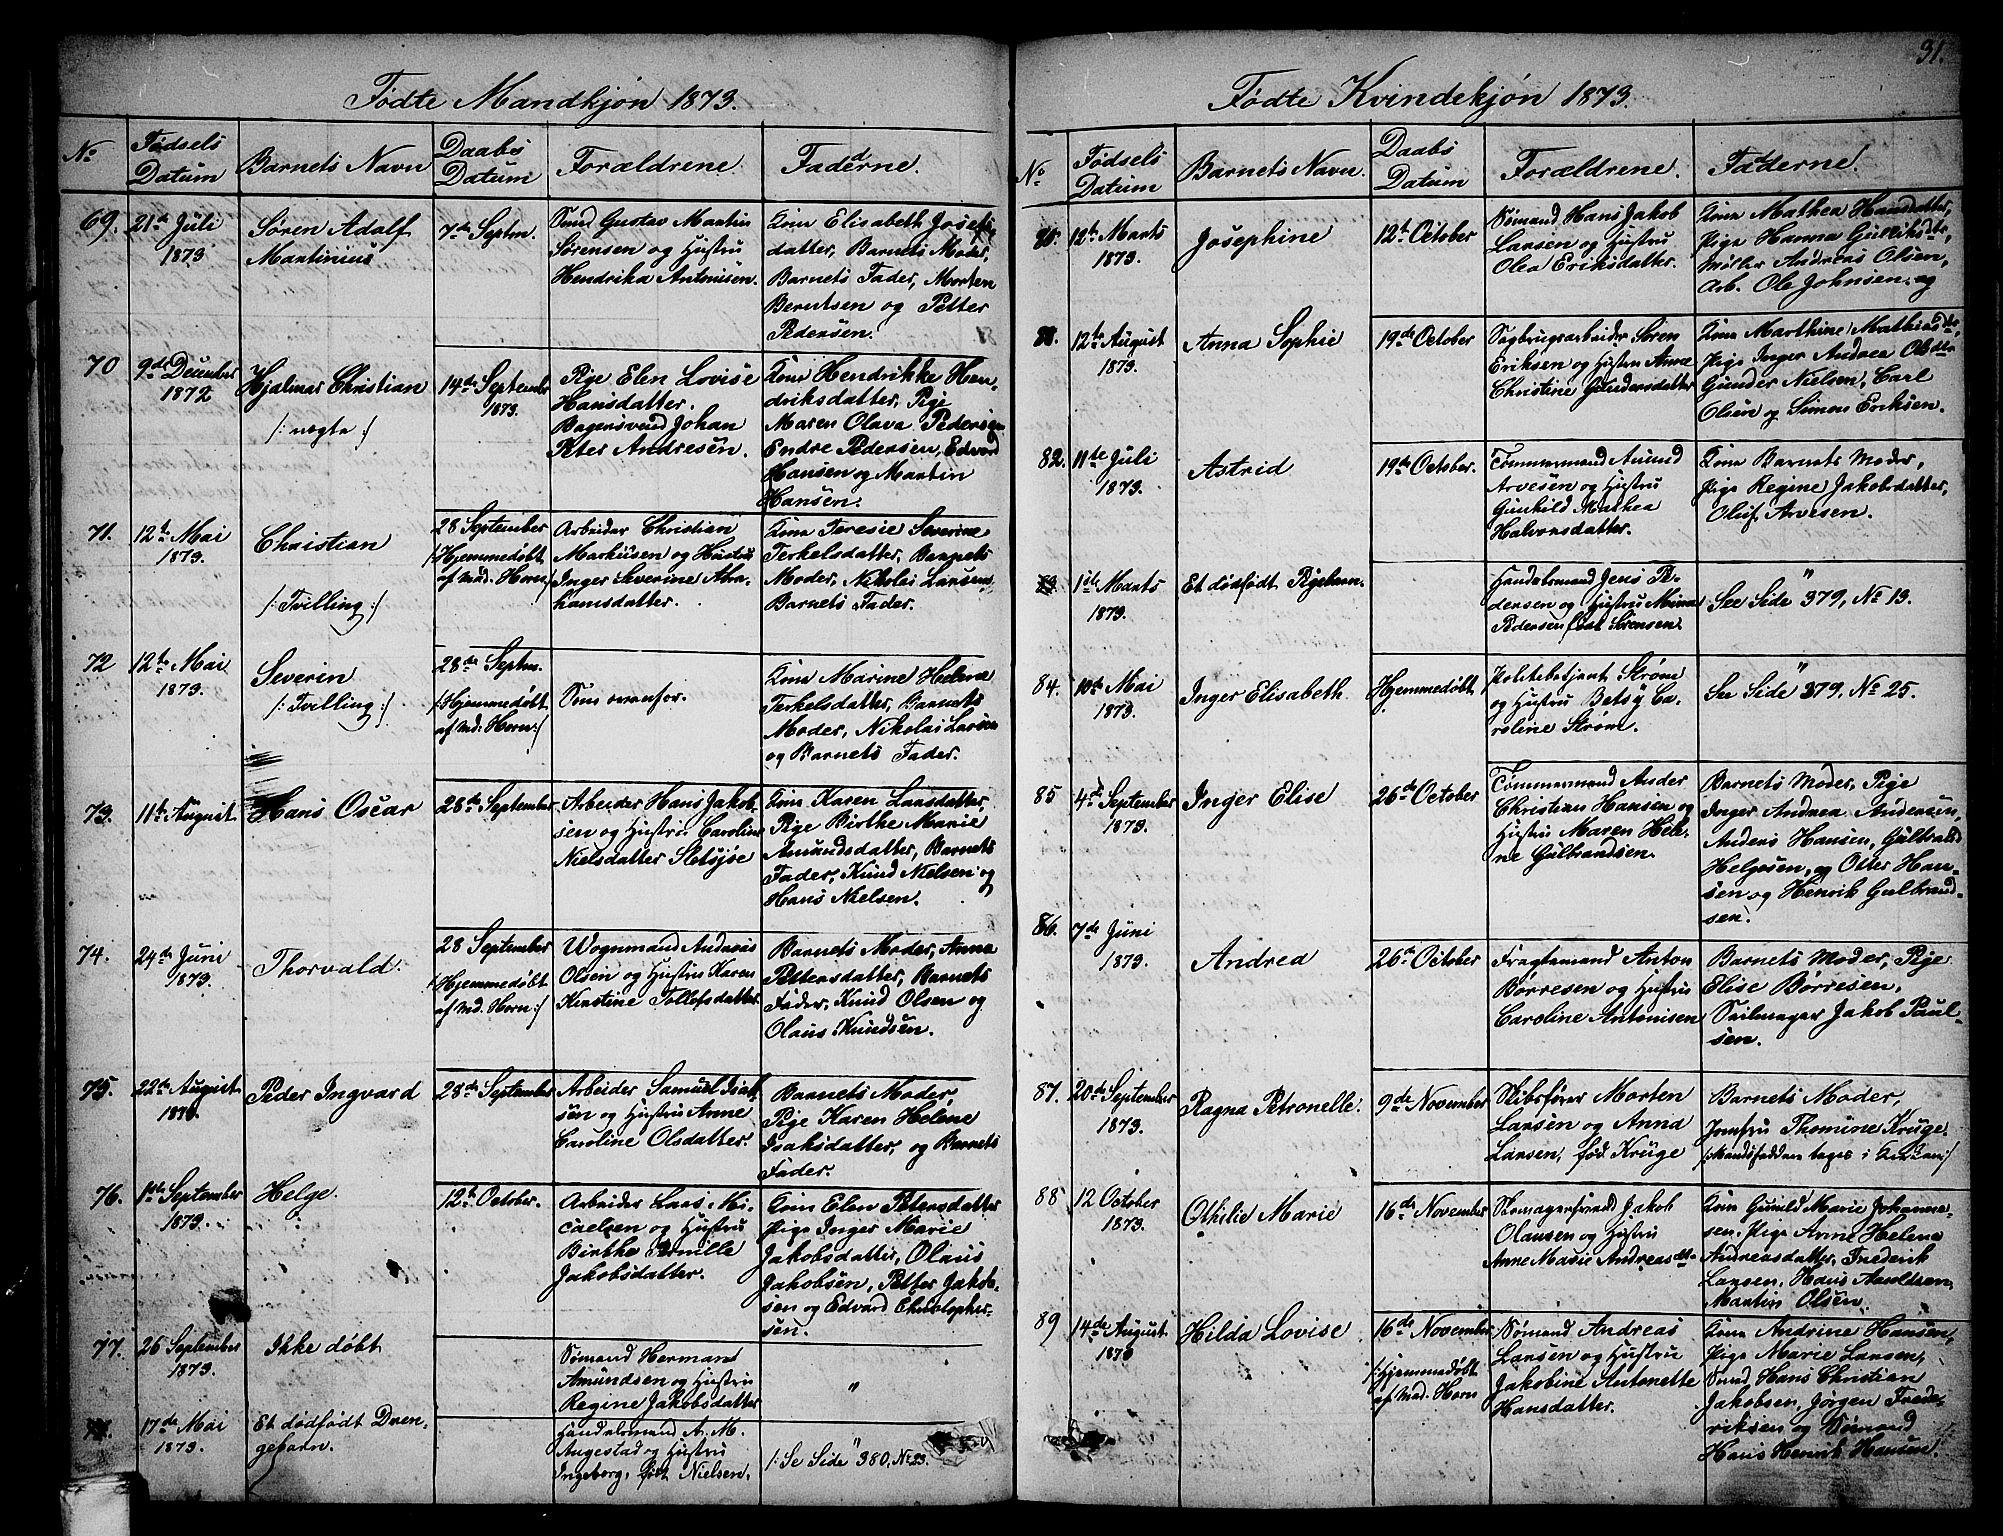 31.
Fødte Mandkjøn 1873.
No
Fødsels Datum
Barnets Navn
Daabs Datum
Forældrene.
Fadderne.
69.
21de Juli
1873
Søren Adolf
Martinius
7de Septm.
Smed Gustav Martin
Sörensen og Hustru
Hendrika Antonisen.
Kone Elisabeth Josefs-
datter, Barnets Moder,
Barnets Fader, Morten
Berntsen og Petter
Pedersen.
70
9de December
1872
Hjalmar Christian
/: uægte :/
14de September
1873.
Pige Elen Lovise
Hansdatter.
Bagersvend Johan
Peter Andresen.
Kone Hendrikke Hen-
driksdatter, Pige
Maren Olava Pedersen
Endre Pedersen, Edvard
Hansen og Martin
Hansen.
71.
12te Mai
1873.
Christian
/: Tvilling :/
28 September
/: Hjemmedøbt
af md. Horn :/
Arbeider Christian
Markusen og Hustru
Inger Severine Abra-
hamsdatter.
Kone Teresie Severine
Terkelsdatter, Barnets
Moder, Nikolai Larsen,
Barnets Fader.
72
12te Mai
1873.
Severin
/: Tvilling :/
28de Septm.
/: Hjemmedøbt
af Md. Horn :/
Som ovenfor.
Kone Marine Helene
Terkelsdatter, Barnets
Moder, Nikolai Larsen
og Barnets Fader.
73.
11te August
Hans Oscar
28de September
Arbeider Hans Jakob-
sen og Hustru Caroline
Nielsdatter Sletsjøe
Kone Karen Larsdatter,
Pige Birthe Marie
Amundsdatter, Barnets
Fader, Knud Nielsen og
Hans Nielsen.
74.
24de Juni
1873.
Thorvald.
28 September
/: Hjemmedøbt
af Md. Horn :/
Vognmand Andreas
Olsen og Hustru Karen
Kirstine Tollefsdatter.
Barnets Moder, Anna
Pettersdatter, Barnets
Fader, Knud Olsen og
Olaus Knudsen.
75.
22de August
1873.
Peder Ingvard
28de September
Arbeider Samuel Isak-
sen og Hustru Anne
Caroline Olsdatter.
Barnets Moder,
Pige Karen Helene
Isaksdatter, og Barnets
Fader.
76.
1ste September
1873.
Helge.
12te October.
Arbeider Lars Mi-
caelsen og Hustru
Birthe Pernille
Jakobsdatter.
Kone Elen Petersdatter
Pige Inger Marie
Jakobsdatter, Olaus
Jakobsen, Petter Jakob-
sen og Edvard Christopher-
sen.
77.
26 September
1873.
Ikke døbt
Sømand Herman
Amundsen og Hustru
Regine Jakobsdatter
"
78.
17de Mai
1873.
Et dødfødt Dren-
gebarn.
Handelsmand A. M.
Angestad og Hustru
Ingeborg, født Nielsen.
/: Se Side "380, No 23.
Fødte Kvindekjøn 1873.
No
Fødsels Datum
Barnets Navn.
Daabs Datum
Forældrene.
Fadderne.
80.
12te Marts
1873.
Josephine
12te October
Sømand Hans Jakob
Larsen og Hustru
Olea Eriksdatter.
Kone Mathea Hansdatter,
Pige Hanna Gulliksdtr,
Møller Andreas Olsen,
Arb. Ole Johnsen, og
81.
12te August
1873.
Anna Sophie
19de October
Sagbrugsarbeider Søren
Eriksen og Hustru Anne
Christine Gundersdatter
Kone Marthine Mathiasdtr,
Pige Inger Andrea Olsdtr
Gunder Nielsen, Carl
Olsen og Simon Eriksen.
82.
11te Juli
1873.
Astrid
19de October.
Tømmermand Amund
Arvesen og Hustru
Gunhild Mathea
Halvorsdatter.
Kone Barnets Moder,
Pige Regine Jakobsdatter,
Oluf Arvesen.
83.
1ste Marts
1873.
Et dødfødt Pigebarn.
Handelsmand Jens Pe-
dersen og Hustru Mina
Pedersen født Sörensen.
See Side "379, No 13.
84.
10de Mai
1873.
Inger Elisabeth.
Hjemmedøbt
Politibetjent Strøm
og Hustru Betsy Ca-
roline Strøm.
See Side "379, No 25.
85
4de September
1873.
Inger Elise
26de October
Tømmermand Anders
Christian Hansen og
Hustru Maren Hele-
ne Gulbrandsen.
Barnets Moder, Pige
Inger Andrea Andersen,
Anders Hansen, Gulbrand
Helgesen, og Otter Han-
sen og Henrik Gulbrand-
sen.
86.
7de Juni
1873.
Andrea
26de October
Fragtemand Anton
Børresen og Hustru
Caroline Antonisen
Barnets Moder, Pige
Elise Børresen,
Seilmager Jakob Paul-
sen.
87.
20de September
1873.
Ragna Petronelle.
9de November
Skibsfører Morten
Larsen og Anna
Larsen, fød Krüge
Barnets Moder,
Jomfru Thomine Krüge.
88
12 October
1873.
Othilie Marie
16de November
Skomagersvend Jakob
Olausen og Hustru
Anne Marie Andreasdtr
Kone Gunild Marie Johanne-
sen. Pige Anne Helene
Andreasdatter, Frederik
Larsen, Hans Aroldsen,
Martin Olsen.
89
14de August
1873
Hilda Lovise
16de November
/: Hjemmedøbt
af Md. Horn
Sømand Andreas
Larsen og Hustru
Jakobine Antonette
Hansdatter.
Kone Andrine Hansen,
Pige Marie Larsen,
Smed Hans Christian
Jakobsen, Jørgen Frede-
riksen og Sømand
Hans Henrik Hansen.